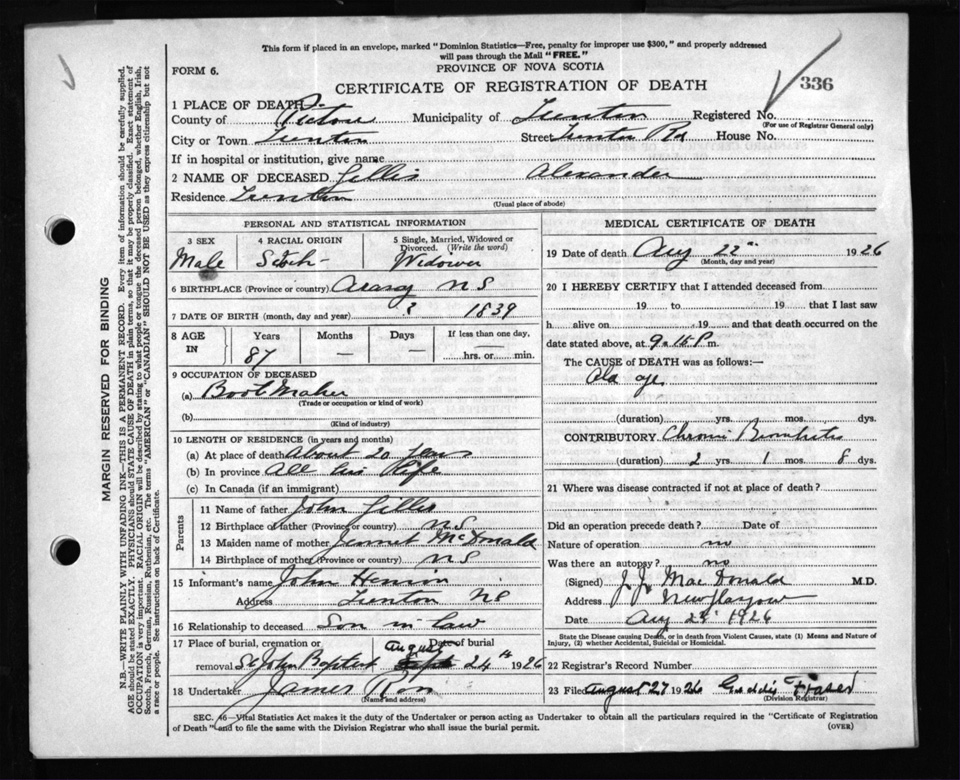 This form if placed in an envelope, marked "Dominion Statistics—Free, penalty for improper use $300," and properly addressed
will pass through the Mail "FREE."
FORM 6.
PROVINCE OF NOVA SCOTIA
CERTIFICATE OF REGISTRATION OF DEATH
336
1 PLACE OF DEATH
County of Pictou Municipality of Trenton Registered No.
(For use of Registrar General only)
City or Town Trenton Street Trenton Rd House No.
If in hospital or institution, give name
2 NAME OF DECEASED Gillis Alexander
Residence Trenton
(Usual place of abode)
PERSONAL AND STATISTICAL INFORMATION
3 SEX 4 RACIAL ORIGIN 5 Single, Married, Widowed or Divorced. (Write the word)
Male Scotch Widower
6 BIRTHPLACE (Province or country) Arasag N S
7 DATE OF BIRTH (month, day and year) ? 1839
8 AGE IN Years Months Days If less than one day,
87 — — hrs. or min.
9 OCCUPATION OF DECEASED
(a) Boot Maker
(Trade or occupation or kind of work)
(b)
(Kind of industry)
10 LENGTH OF RESIDENCE (in years and months)
(a) At place of death About 20 years
(b) In province All his life
(c) In Canada (if an immigrant)
Parents
11 Name of father John Gillis
12 Birthplace of father (Province or country) N S
13 Maiden name of mother Jennet McDonald
14 Birthplace of mother (Province or country) N S
15 Informant's name John
Address Trenton NS
16 Relationship to deceased Son in law
17 Place of burial, cremation or removal St John Baptist Date of burial August 24th 1926
18 Undertaker James Ross
(Name and address)
MEDICAL CERTIFICATE OF DEATH
19 Date of death Aug 22nd 1926
(Month, day and year)
20 I HEREBY CERTIFY that I attended deceased from
19 to 19 that I last saw
h alive on 19 and that death occurred on the
date stated above, at 9.15 P.m.
The CAUSE of DEATH was as follows:—
Old age
(duration) yrs. mos. dys.
CONTRIBUTORY Chronic Bronchitis
(duration) 2 yrs. 1 mos. 8 dys.
21 Where was disease contracted if not at place of death?
Did an operation precede death? Date of
Nature of operation no
Was there an autopsy? no
(Signed) J. J. MacDonald M.D.
Address New Glasgow
Date Aug 25 1926
State the Disease causing Death, or in death from Violent Causes, state (1) Means and Nature of
Injury, (2) whether Accidental, Suicidal or Homicidal.
22 Registrar's Record Number
23 Filed August 27 1926 Fraser
(Division Registrar)
SEC. 46—Vital Statistics Act makes it the duty of the Undertaker or person acting as Undertaker to obtain all the particulars required in the "Certificate of Registration
of Death" and to file the same with the Division Registrar who shall issue the burial permit.
(OVER)
MARGIN RESERVED FOR BINDING
N.B.—WRITE PLAINLY WITH UNFADING INK—THIS IS A PERMANENT RECORD. Every item of information should be carefully supplied.
AGE should be stated EXACTLY. PHYSICIANS should STATE CAUSE OF DEATH in plain terms, so that it may be properly classified. Exact statement of
OCCUPATION is very important. RACIAL ORIGIN will be described by stating to what people or tongue the deceased person belonged, whether English, Irish,
Scotch, French, German, Russian, Ruthenian, etc. The terms "AMERICAN" or "CANADIAN" SHOULD NOT BE USED as they express citizenship but not
a race or people. See instructions on back of Certificate.